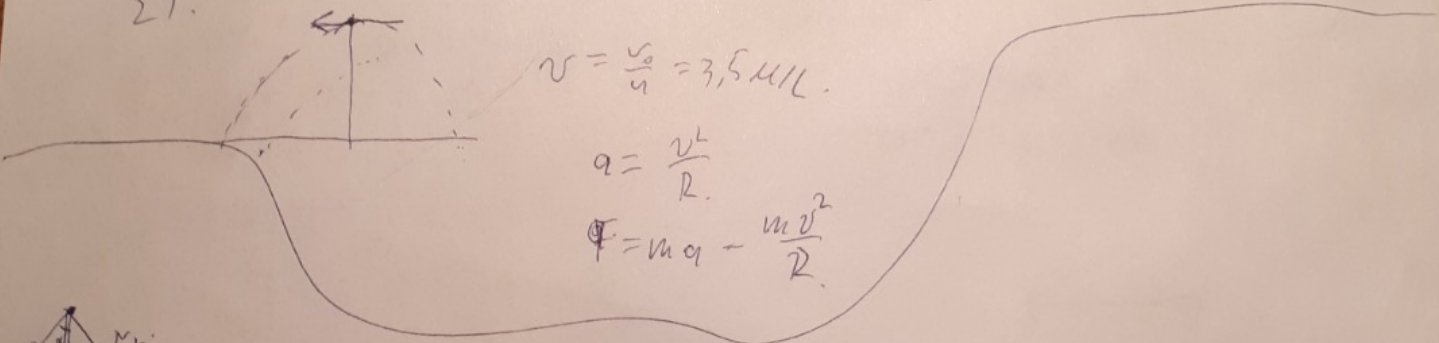 21.
v = v₀/4 = 3,5 м/с.
a = v²/R.
F = ma - mv²/R.